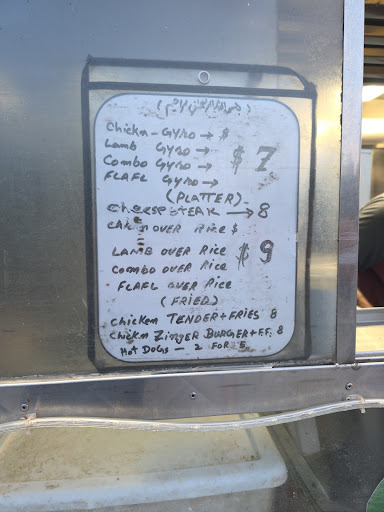 Chickn - Gyro → $
Lamb Gyro →
Combo Gyro → $ 7
FLAFL Gyro →
(PLATTER)
cheese STEAK → 8
OVER Rice $
LAMB OVER Rice
Combo OVER Rice $ 9
FLAFL OVER Rice
(FRIED)
Chicken TENDER + FRIES 8
Chickn Zinger BURGER + F.F. 8
Hot DOGS — 2 FOR 5